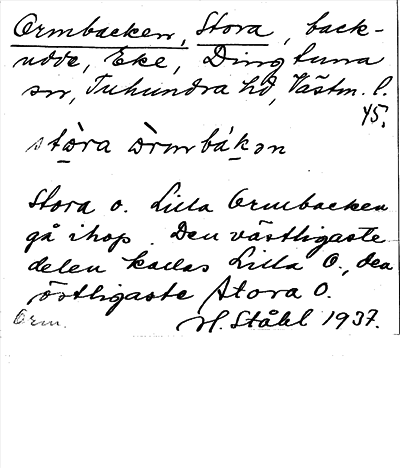 Ormbacken, Stora, back-
udde, Eke, Dingtuna
sn, Tuhundra hd, Västm. l.
45.
stòra òrmbák̠ən
Stora o. Lilla Ormbacken
gå ihop. Den västligaste
delen kallas Lilla O., den
östligaste Stora O.
Orm. H. Ståhl 1937.